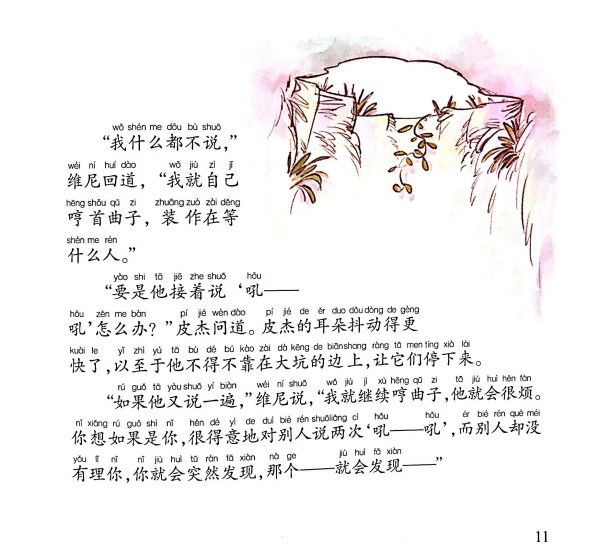 wǒ shén me dōu bù shuō
“我什么都不说,”
wéi ní huí dào wǒ jiù zì jǐ
维尼回道,“我就自己
hēng shǒu qǔ zi zhuāng zuò zài děng
哼首曲子,装作在等
shén me rén
什么人。”
yào shi tā jiē zhe shuō hǒu
“要是他接着说‘吼——
hǒu zěn me bàn pí jié wèn dào pí jié de ěr duo dǒu dòng de gèng
吼’怎么办?”皮杰问道。皮杰的耳朵抖动得更
kuài le yǐ zhì yú tā bù dé bú kào zài dà kēng de biān shang ràng tā men tíng xià lái
快了,以至于他不得不靠在大坑的边上,让它们停下来。
rú guǒ tā yòu shuō yí biàn wéi ní shuō wǒ jiù jì xù hēng qǔ zi tā jiù huì hěn fán
“如果他又说一遍,”维尼说,“我就继续哼曲子,他就会很烦。
nǐ xiǎng rú guǒ shì nǐ hěn dé yì de duì bié rén shuō liǎng cì hǒu hǒu ér bié rén què méi
你想如果是你,很得意地对别人说两次‘吼——吼’,而别人却没
yǒu lǐ nǐ nǐ jiù huì tū rán fā xiàn nà ge jiù huì fā xiàn
有理你,你就会突然发现,那个——就会发现——”
11